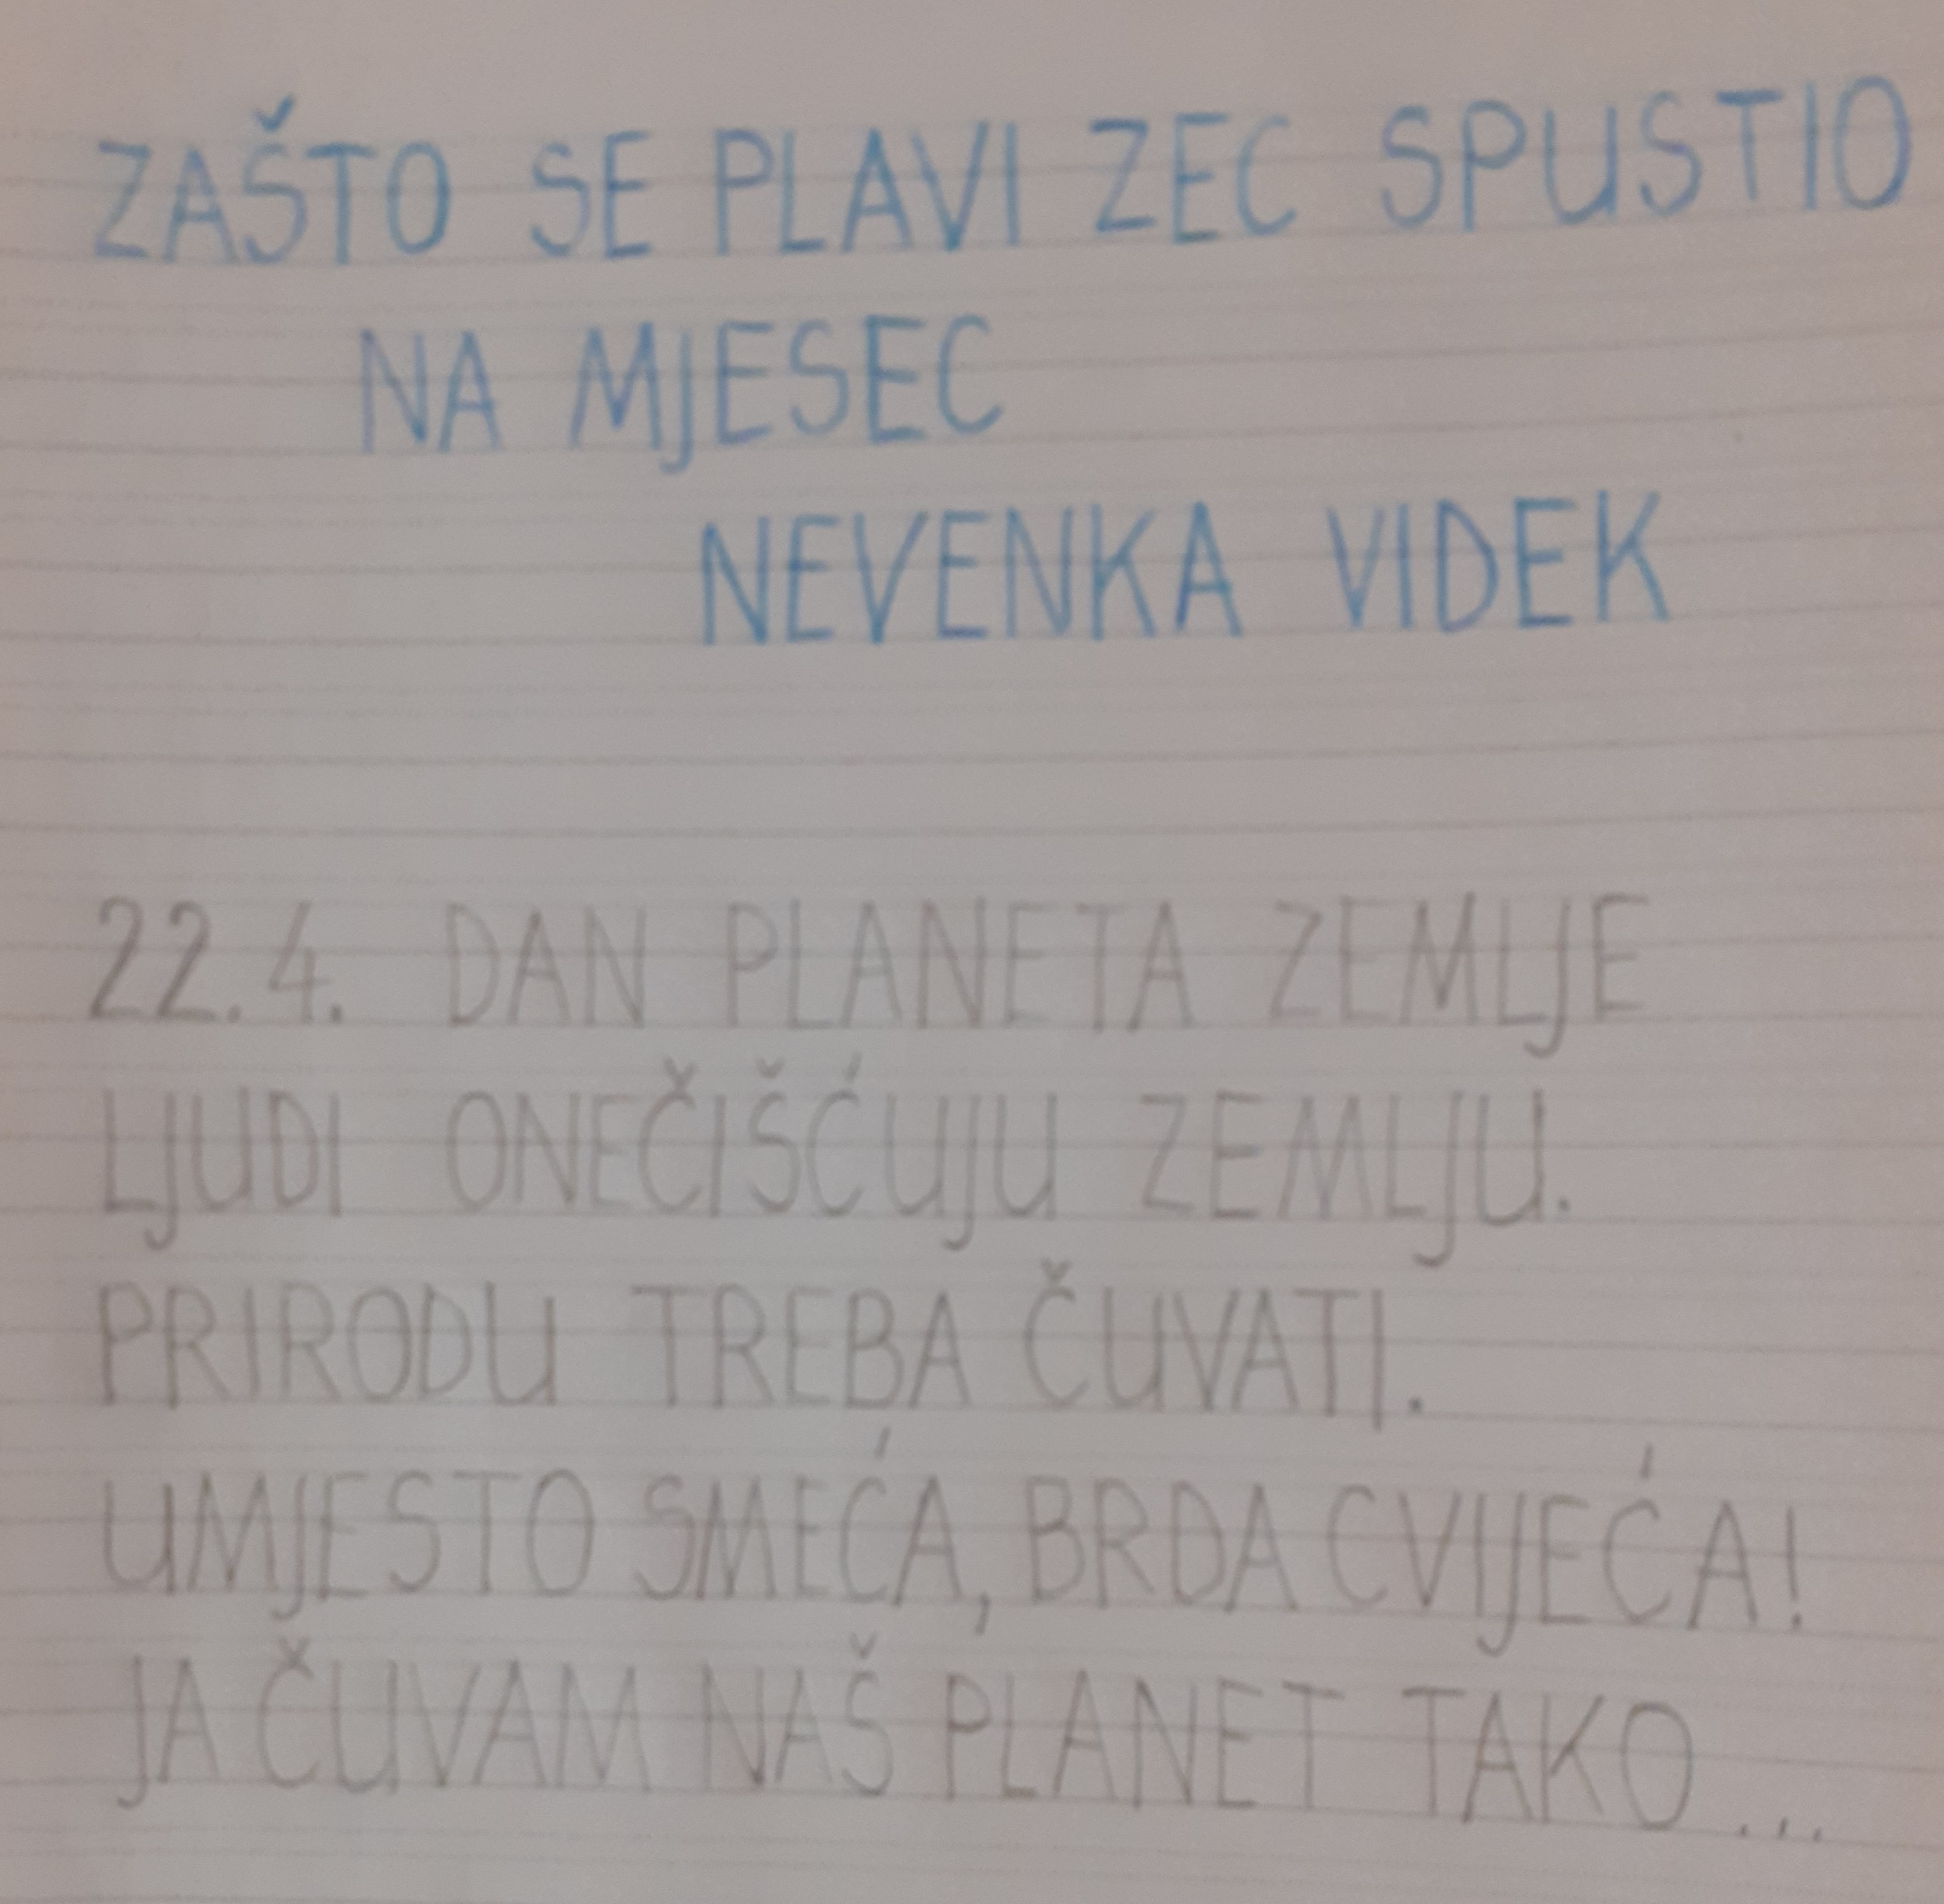 ZAŠTO SE PLAVI ZEC SPUSTIO
NA MJESEC
NEVENKA VIDEK
22.4. DAN PLANETA ZEMLJE
LJUDI ONEČIŠĆUJU ZEMLJU.
PRIRODU TREBA ČUVATI.
UMJESTO SMEĆA, BRDA CVIJEĆA!
JA ČUVAM NAŠ PLANET TAKO...